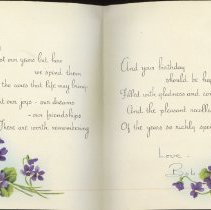 not our years but how
we spend them
the cares that life may bring
our joys - our dreams
- our friendships
These are worth remembering
And your birthday
should be
Filled with gladness and
And the pleasant
Of the years so richly spent
Love -
Bob